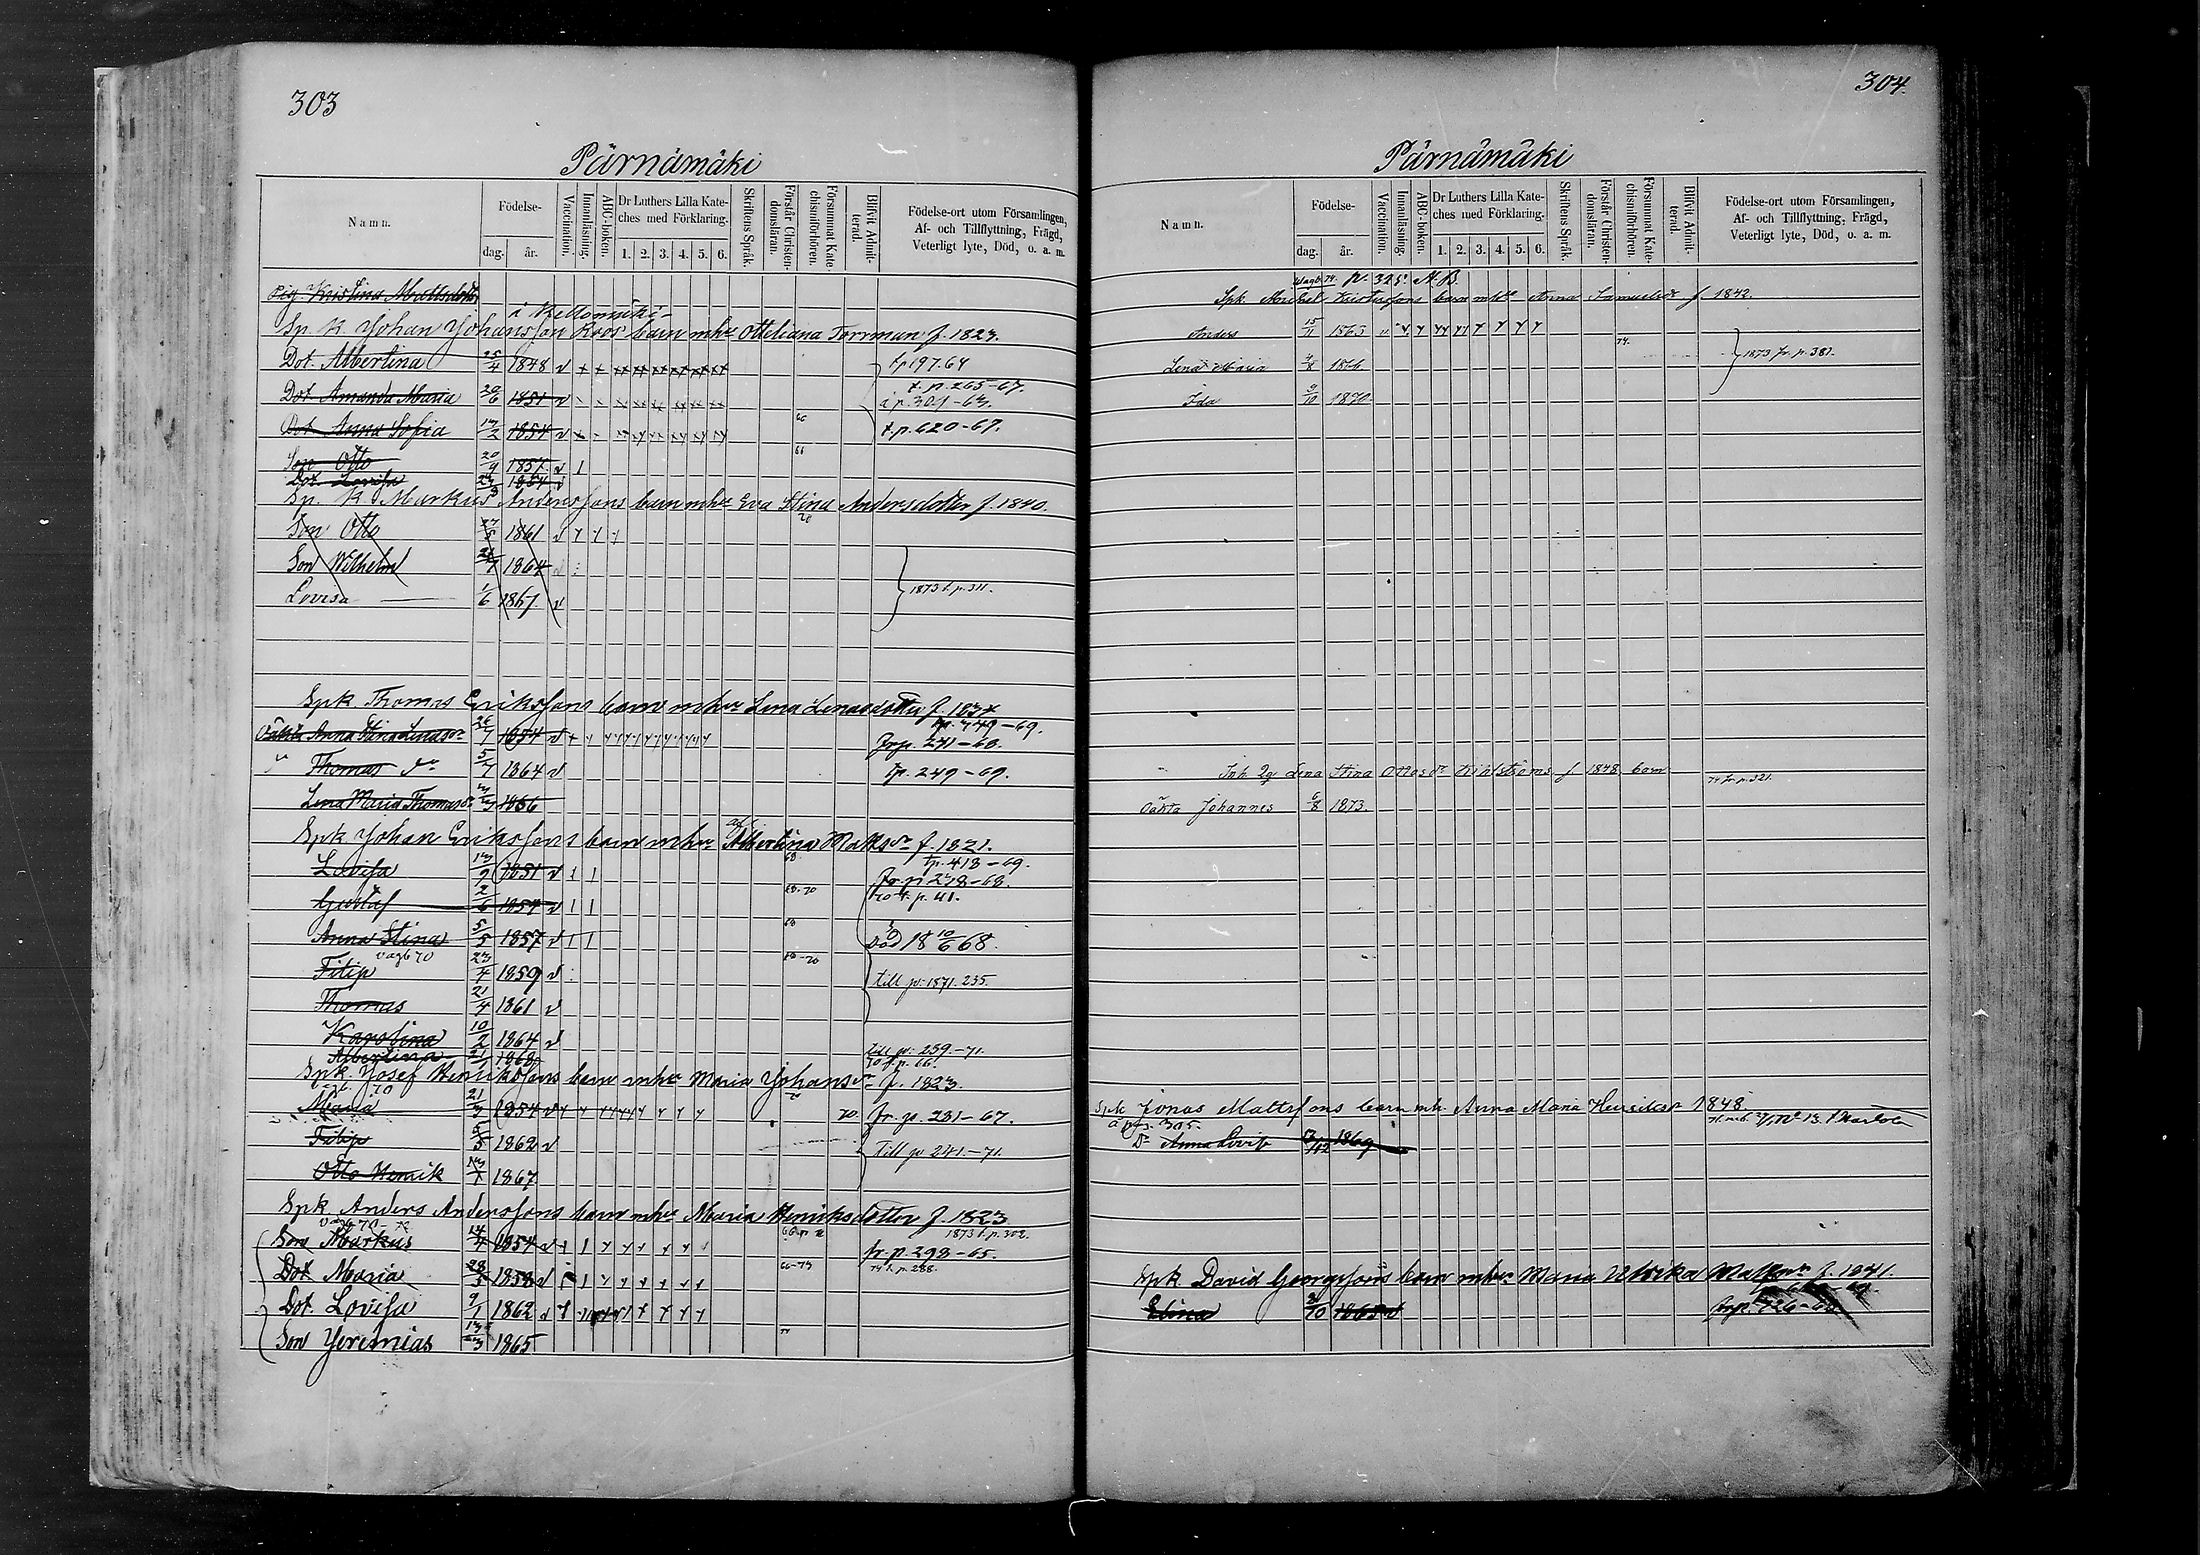 303
Pärnämäki
Namn.
Födelse-
dag.
år.
Vaccination.
Innanläsning.
ABC-boken.
Dr Luthers Lilla Kate-
ches med Förklaring.
1. 2. 3. 4. 5. 6.
Skriftens Språk.
Förstår Christen-
domsläran.
Försummat Kate-
chismiförhören.
Blifvit Admit-
terad.
Födelse-ort utom Församlingen,
Af- och Tillflyttning, Frägd,
Veterligt lyte, Död, o. a. m.
Pig. Kristina Mattsdotter
i Keltomäki
Sp. K Johan Johansson Roos barn mhu Otteliana Torrman f. 1823.
Dot. Albertina 25/4 1848 v tp 197.64
t. p. 265-67.
Dot. Amanda Maria 20/6 1851 v å p. 301-63.
Dot. Anna Sofia 13/2 1854 v 66 t.p. 620-67.
Son Otto 20/9 1857 v 66
Dot. Lovisa 1854 v
Sp. K Markus Anderssons barn mhu Eva Stina Andersdotter f. 1840.
Son Otto 27/5 1861 v
Son Wilhelm 21/7 1864
Lovisa 1/6 1867 v 1873 t. p. 311.
Spk Thomas Erikssons barn mhu Lena Lenasdotter f. 1834
tp. 349-69.
Oäkta Anna Stina Lenasdr 26/7 1854 v frp. 241-68.
Thomas dr 5/7 1864 v tp. 249-69.
Lena Maria Thomasdr 1866
Spk Johan Erikssons barn mhu Albertina Mattsdr f. 1821.
tp. 418-69.
Lovisa 13/9 1851 v 68 fr p 238-68.
Gustaf 2/6 1854 v 68-70 70 t. p. 41.
Anna Stina 5/5 1857 v 68 död 18 10/6 68.
vagb 70
Filip 23/4 1859 v 68-70 till p. 1871. 235.
Thomas 21/4 1861 v
Karolina 10/2 1864 v
till p. 259.-71.
Albertina 21/1 1868 70 f. p. 66.
Spk. Josef Henrikssons barn mhu Maria Johansdr f. 1823.
Maria 21/3 1854 v 70. fr. p. 231-67.
Filip 5/5 1862 v till p 241.-71.
Otto Henrik 13/1 1867
Spk Anders Anderssons barn mhu Maria Henriksdotter f. 1823
1873 t. p. 302.
Son Markus 14/4 1854 v fr. p. 298-65.
Dot Maria 28/5 1858 v 66-73 74 t. p. 288.
Dot. Lovisa 9/1 1862 v
Son Jeremias 13/3 1865
304.
Pärnämäki
Namn.
Födelse-
dag.
år.
Vaccination.
Innanläsning.
ABC-boken.
Dr Luthers Lilla Kate-
ches med Förklaring.
1. 2. 3. 4. 5. 6.
Skriftens Språk.
Förstår Christen-
domsläran.
Försummat Kate-
chismiförhören.
Blifvit Admit-
terad.
Födelse-ort utom Församlingen,
Af- och Tillflyttning, Frägd,
Veterligt lyte, Död, o. a. m.
vagb. 74. p. 325. A.B.
Spk Mickel Kristerssons barn mhu Anna Samuelsdr f. 1842.
Anders 15/11 1863 74. 1873 fr. p. 381.
Lena Maria 4/8 1866
Ida 9/10 1870
Inh. Lena Stina Ottosdr Kihlströms f 1848 barn 74 fr. p. 321.
Oäkta Johannes 6/8 1873
Spk Jonas Mattssons barn mh. Anna Maria Henriksdr 1848.
å p. 305.
Dr Anna Lovisa /12 1869
Spk David Georgssons barn mhu Maria Ulrika Mattsdr f. 1841.
Elina 8/10 1865 v frp. 726-68